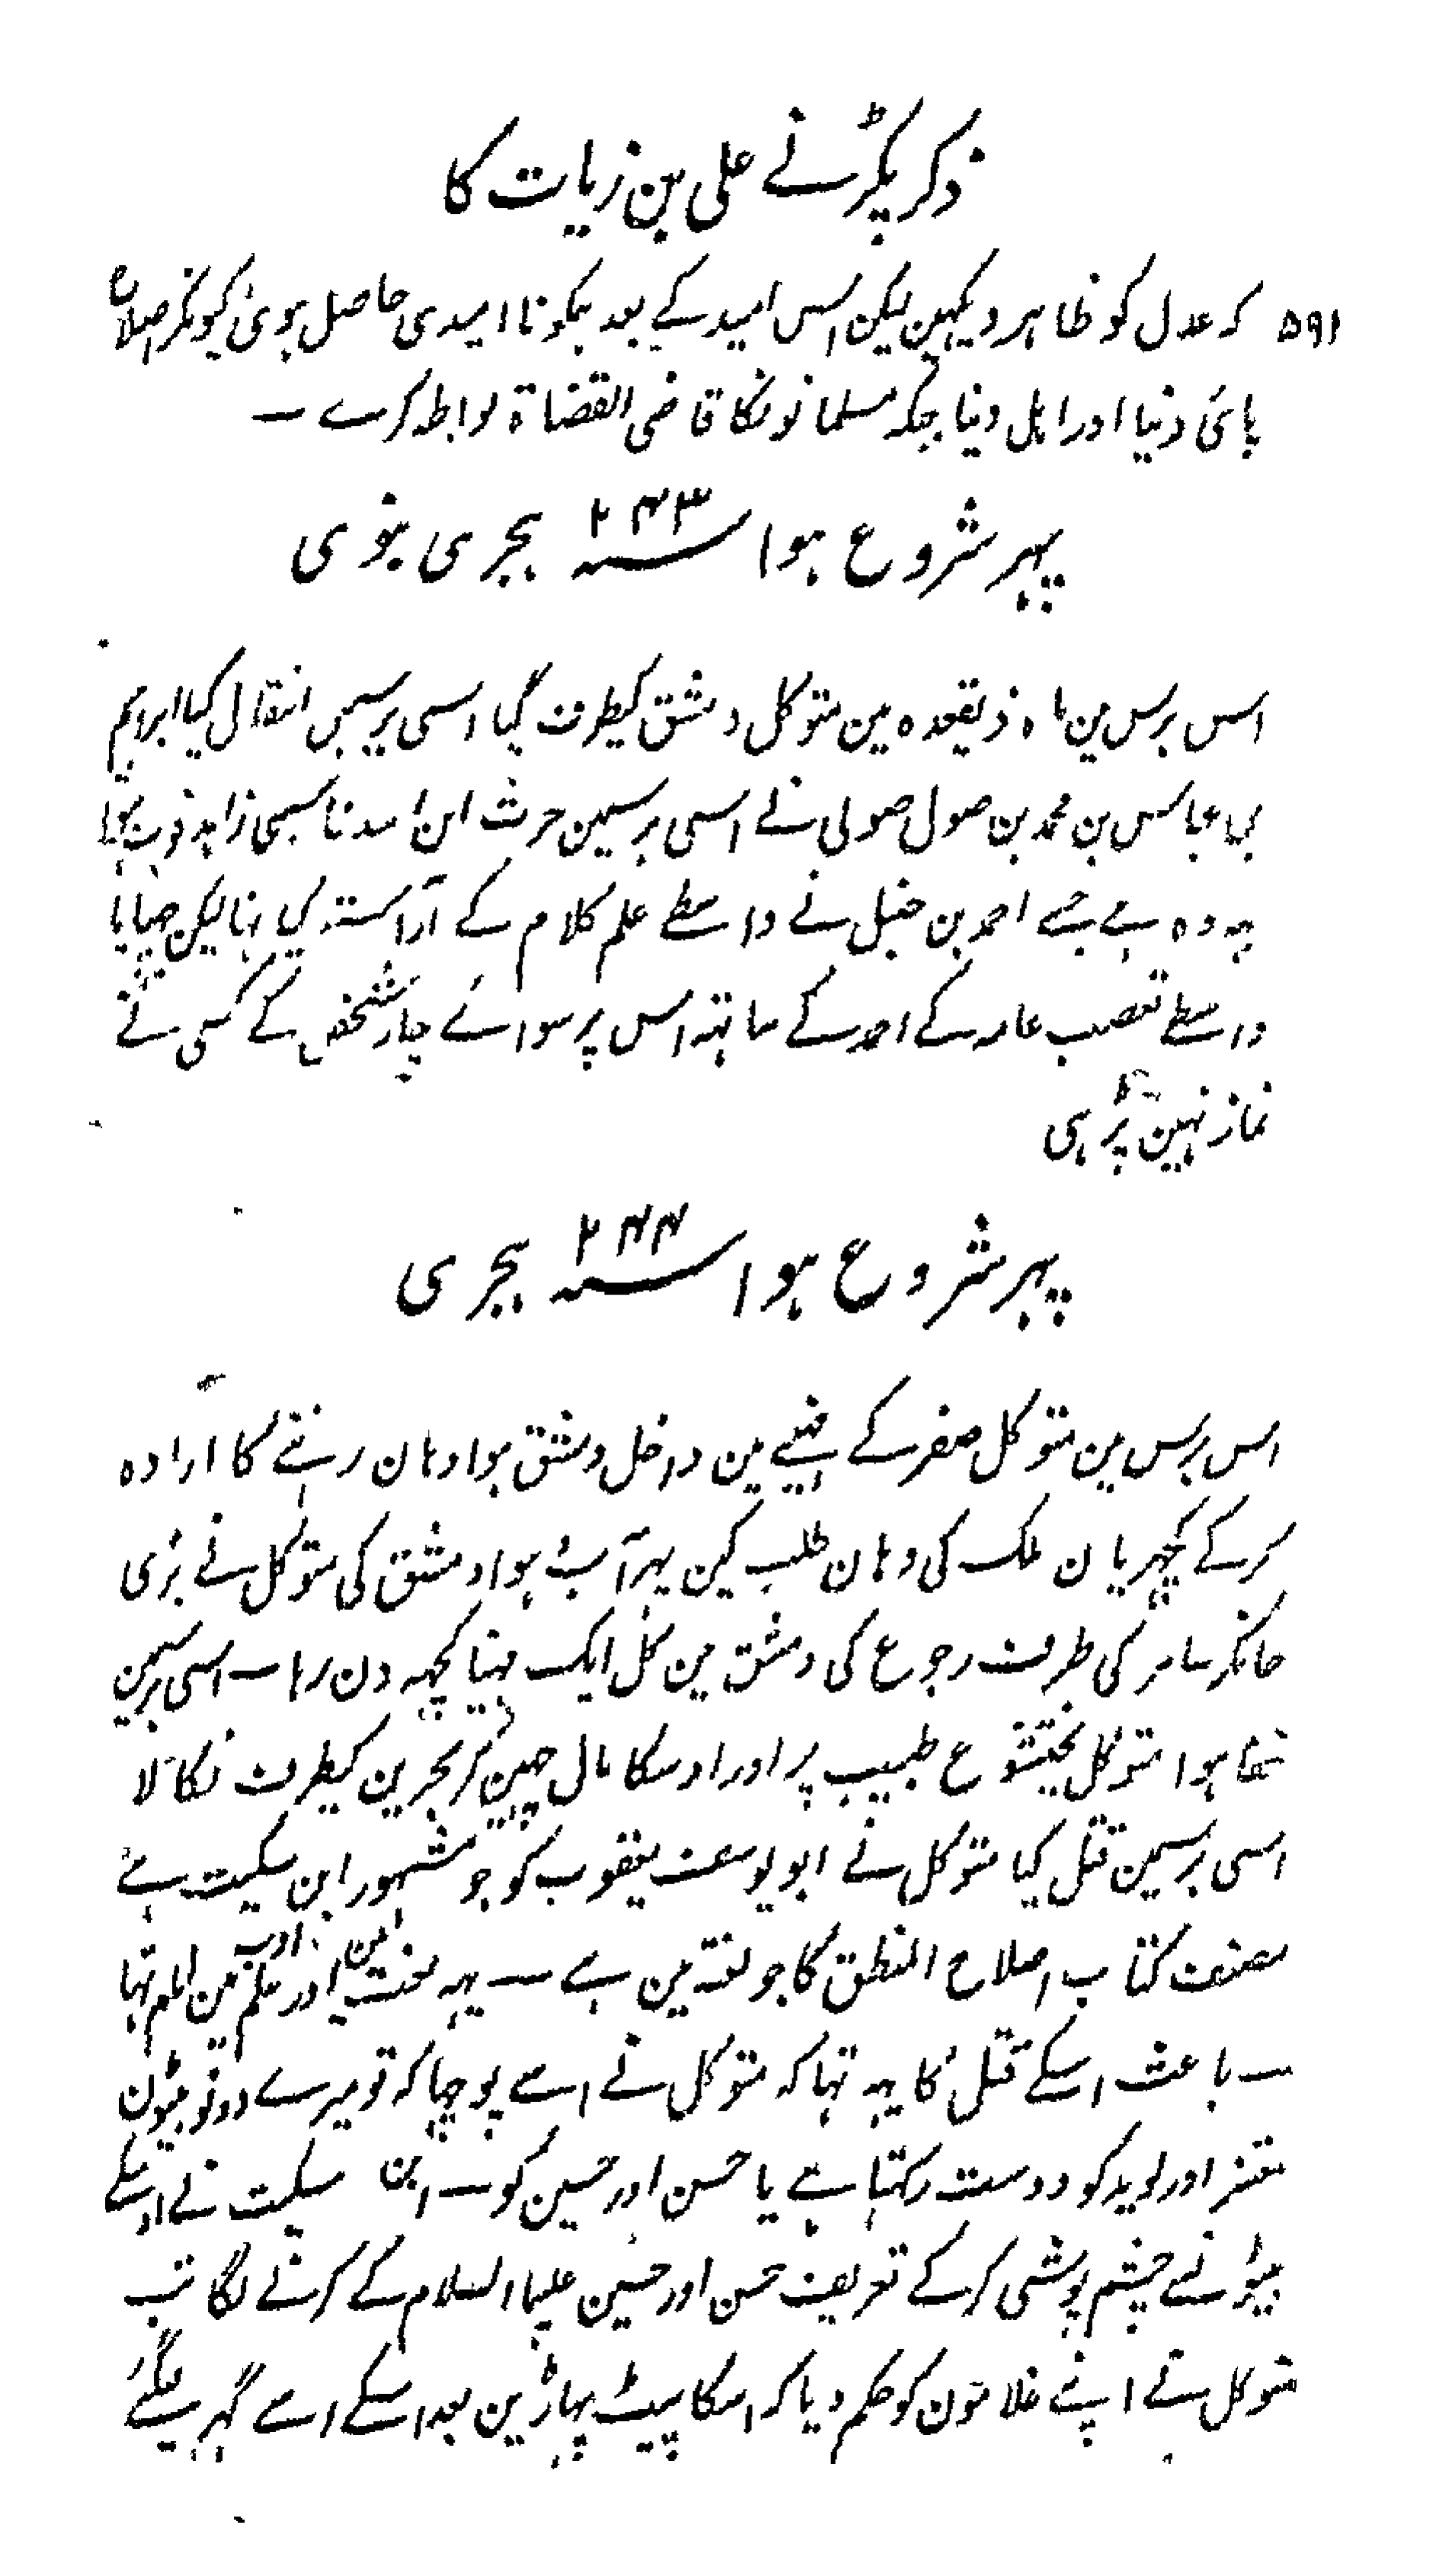 ذکر پکڑنے علی بن زیات کا
۵۹۱ کہ عدل کو ظاہر دیکہین لیکن اس امید کے بعد ہمکو نا امیدی حاصل ہوئی کیونکر اصلاح
پائی دنیا اور اہل دنیا جبکہ مسلمانونکا قاضی القضاۃ لواطہ کرے —
پہر شروع ہوا سنہ ۲۴۳ ہجری نبوی
اس برس مین ماہ ذیقعدہ مین متوکل دمشق کیطرف گیا اسی برسمین انتقال کیا ابراہیم
بن عباس بن محمد بن صول صولی نے اسی برسمین حرث ابن اسد زاہد فوت
یہ وہ ہے جسے احمد بن حنبل نے واسطے علم کلام کے آراستہ کیا تہا لیکن چہپایا
واسطے تعصب عامہ کے احمد کے ساتہہ اس پر سوائے چار شخص کے کسی نے
نماز نہین پڑہی
پہر شروع ہوا سنہ ۲۴۴ ہجری
اس برس مین متوکل صفر کے مہینے مین داخل دمشق ہوا وہان رہنے کا ارادہ
کرکے کچہریان ملک کی وہان طلب کین پہر آب و ہوا دمشق کی متوکل نے بری
جانکر سامر کی طرف رجوع کی دمشق مین کل ایک مہینا کچہہ دن رہا — اسی برسمین
خفا ہوا متوکل بختیشوع طبیب پر اور اوسکا مال چہین کر بحرین کیطرف نکالا
اسی برسمین قتل کیا متوکل نے ابو یوسف یعقوب کو جو مشہور ابن سکیت ہے
مصنف کتاب اصلاح المنطق کا جو لغتہ مین ہے — یہہ لغت اور علم ادب مین امام تہا
— باعث اسکے قتل کا یہہ تہا کہ متوکل نے اسے پوچہا کہ تو میرے دونو بیٹون
معتز اور موید کو دوست رکہتا ہے یا حسن اور حسین کو — ابن سکیت نے اوسکے
بیٹونسے چشم پوشی کرکے تعریف حسن اور حسین علیہما السلام کے کرنے لگا تب
متوکل نے اپنے غلامون کو حکم دیا کہ اسکا پیٹ پہاڑین بعد اسکے اسے گہر لیگئے